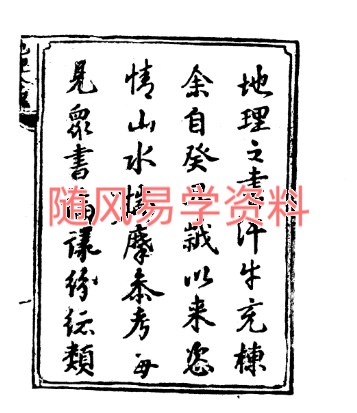 地理之書汗牛充棟
余自癸歲以来恣
情山水揣摩叅考每
見眾書議紛紜類
随风易学资料